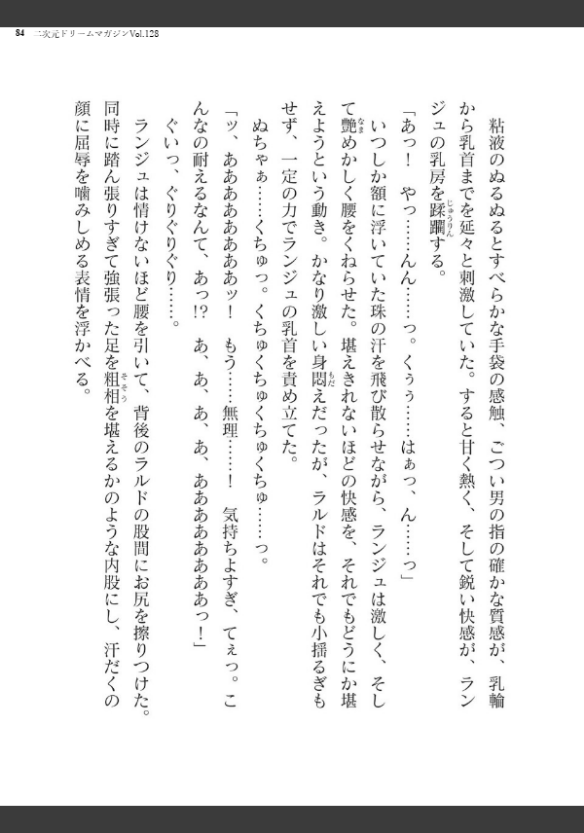 84 二次元ドリームマガジンVol.128
粘液のぬるぬるとすべらかな手袋の感触、ごつい男の指の確かな質感が、乳輪
から乳首までを延々と刺激していた。すると甘く熱く、そして鋭い快感が、ラン
ジュの乳房を蹂躙する。
「あっ！　やっ……んん……っ。くぅぅ……はぁっ、ん……っ」
いつしか額に浮いていた珠の汗を飛び散らせながら、ランジュは激しく、そし
て艶めかしく腰をくねらせた。堪えきれないほどの快感を、それでもどうにか堪
えようという動き。かなり激しい身悶えだったが、ラルドはそれでも小揺るぎも
せず、一定の力でランジュの乳首を責め立てた。
ぬちゃぁ……くちゅっ。くちゅくちゅくちゅくちゅ……っ。
「ッ、ああああああああッ！　もう……無理……！　気持ちよすぎ、てぇっ。こ
んなの耐えるなんて、あっ!?　あ、あ、あ、あ、あああああああああっ！」
ぐいっ、ぐりぐりぐり……。
ランジュは情けないほど腰を引いて、背後のラルドの股間にお尻を擦りつけた。
同時に踏ん張りすぎて強張った足を粗相を堪えるかのような内股にし、汗だくの
顔に屈辱を噛みしめる表情を浮かべる。